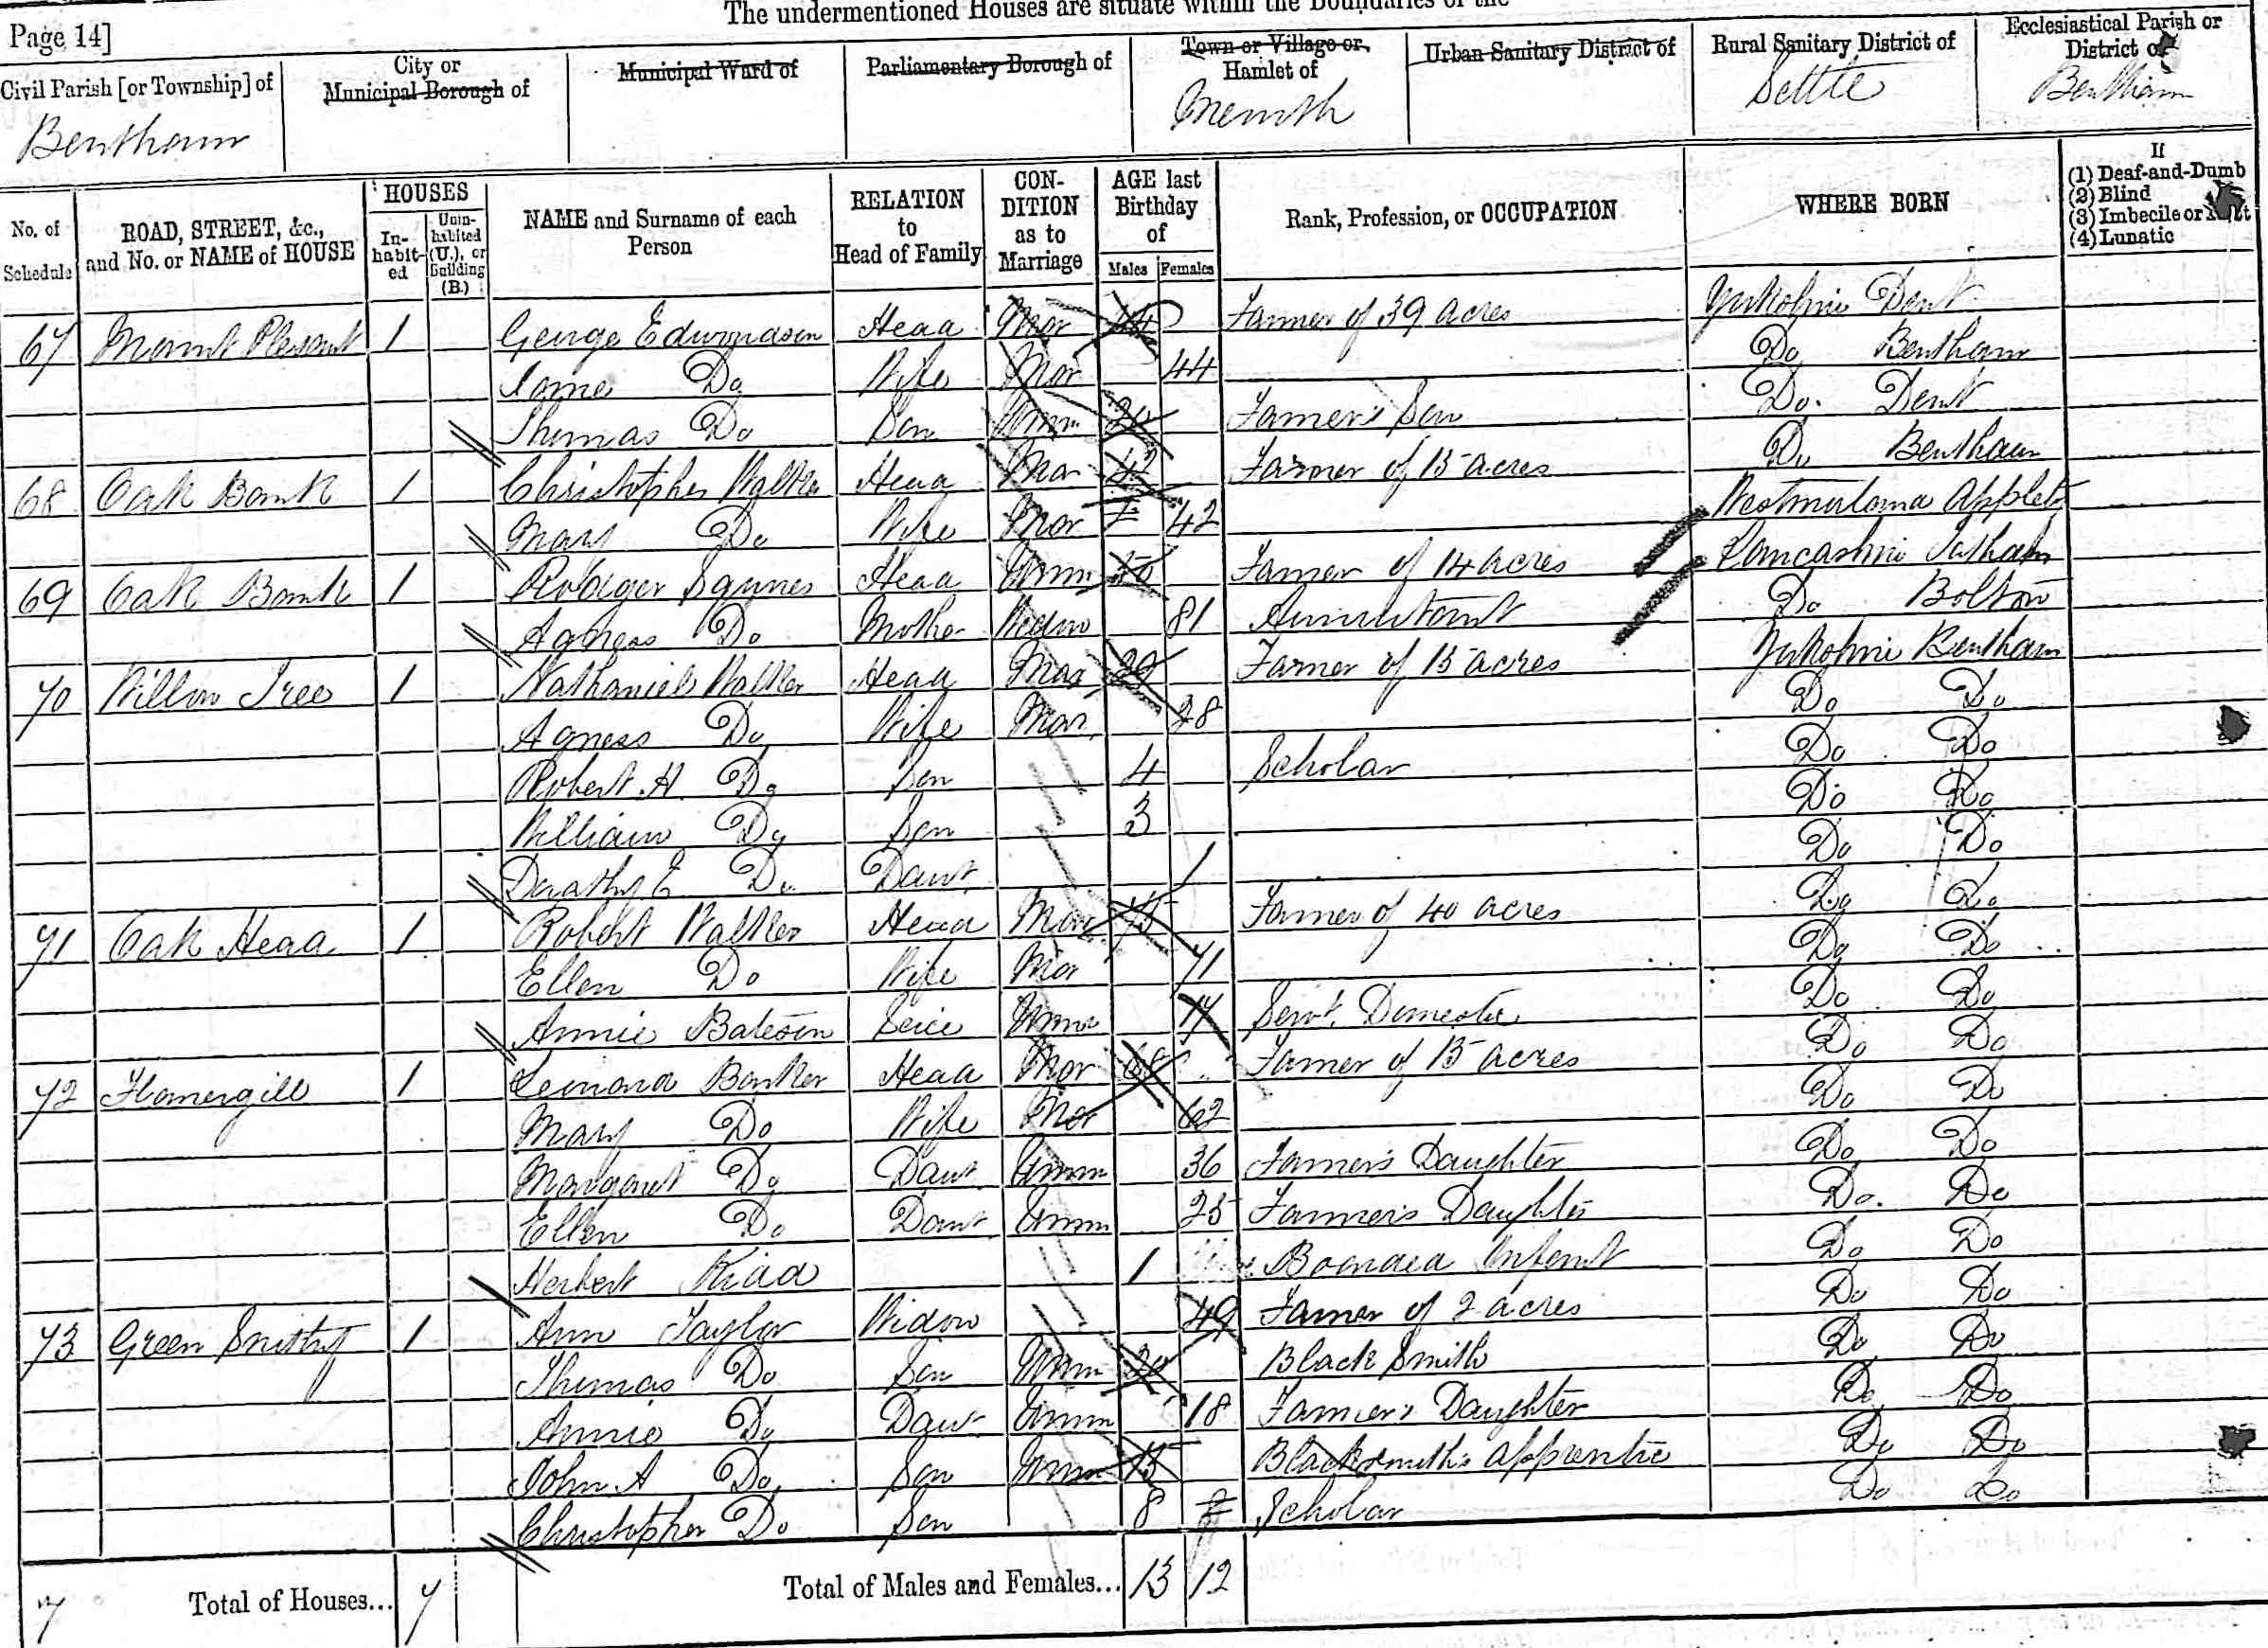 The undermentioned Houses are situate within the Boundaries of the
Page 14]
Civil Parish [or Township] of
Bentham
City or Municipal Borough of
Municipal Ward of
Parliamentary Borough of
Town or Village or Hamlet of
Urban Sanitary District of
Rural Sanitary District of
Settle
Ecclesiastical Parish or District of
Bentham
No. of Schedule
ROAD, STREET, &c., and No. or NAME of HOUSE
HOUSES
In-habit-ed
Unin-habited (U.), or Building (B.)
NAME and Surname of each Person
RELATION to Head of Family
CON-DITION as to Marriage
AGE last Birthday of
Males Females
Rank, Profession, or OCCUPATION
WHERE BORN
If
(1) Deaf-and-Dumb
(2) Blind
(3) Imbecile or Idiot
(4) Lunatic
67 Mount Pleasant 1 George Edmondson Head Mar Farmer of 39 acres Yorkshire Dent
Do Wife Mar 44 Do Bentham
Thomas Do Son Unm Farmer's Son Do. Dent
68 Oak Bank 1 Christopher Walker Head Mar Farmer of 15 acres Do Bentham
Mary Do Wife Mar 42 Westmorland
69 Oak Bank 1 Head Unm Farmer of 14 acres Lancashire Tatham
Agness Do Mother Widow 81 Do Bolton
70 Willow Tree 1 Nathaniel Walker Head Mar 29 Farmer of 15 acres Yorkshire Bentham
Agness Do Wife Mar 28 Do Do
Robert H. Do Son 4 Scholar Do Do
William Do Son 3 Do Do
Dorothy E Do Daur 1 Do Do
71 Oak Head 1 Robert Walker Head Mar 75 Farmer of 40 acres Do Do
Ellen Do Wife Mar 71 Do Do
Annie Bateson Unm 17 Servt. Domestic Do Do
72 Flamergill 1 Leonard Head Mar 68 Farmer of 15 acres Do Do
Mary Do Wife Mar 62 Do Do
Margaret Do Daur Unm 36 Farmer's Daughter Do Do
Ellen Do Daur Unm 25 Farmer's Daughter Do. Do
Herbert Kidd 1 Boarded Infant Do Do
73 Green Smithy 1 Ann Taylor Widow 49 Farmer of 2 acres Do Do
Thomas Do Son Unm Black Smith Do Do
Annie Do Daur Unm 18 Farmer's Daughter Do Do
John A Do Son Unm 15 Blacksmith's apprentice Do Do
Christopher Do Son 8 Scholar Do Do
7 Total of Houses... 7 Total of Males and Females... 13 12